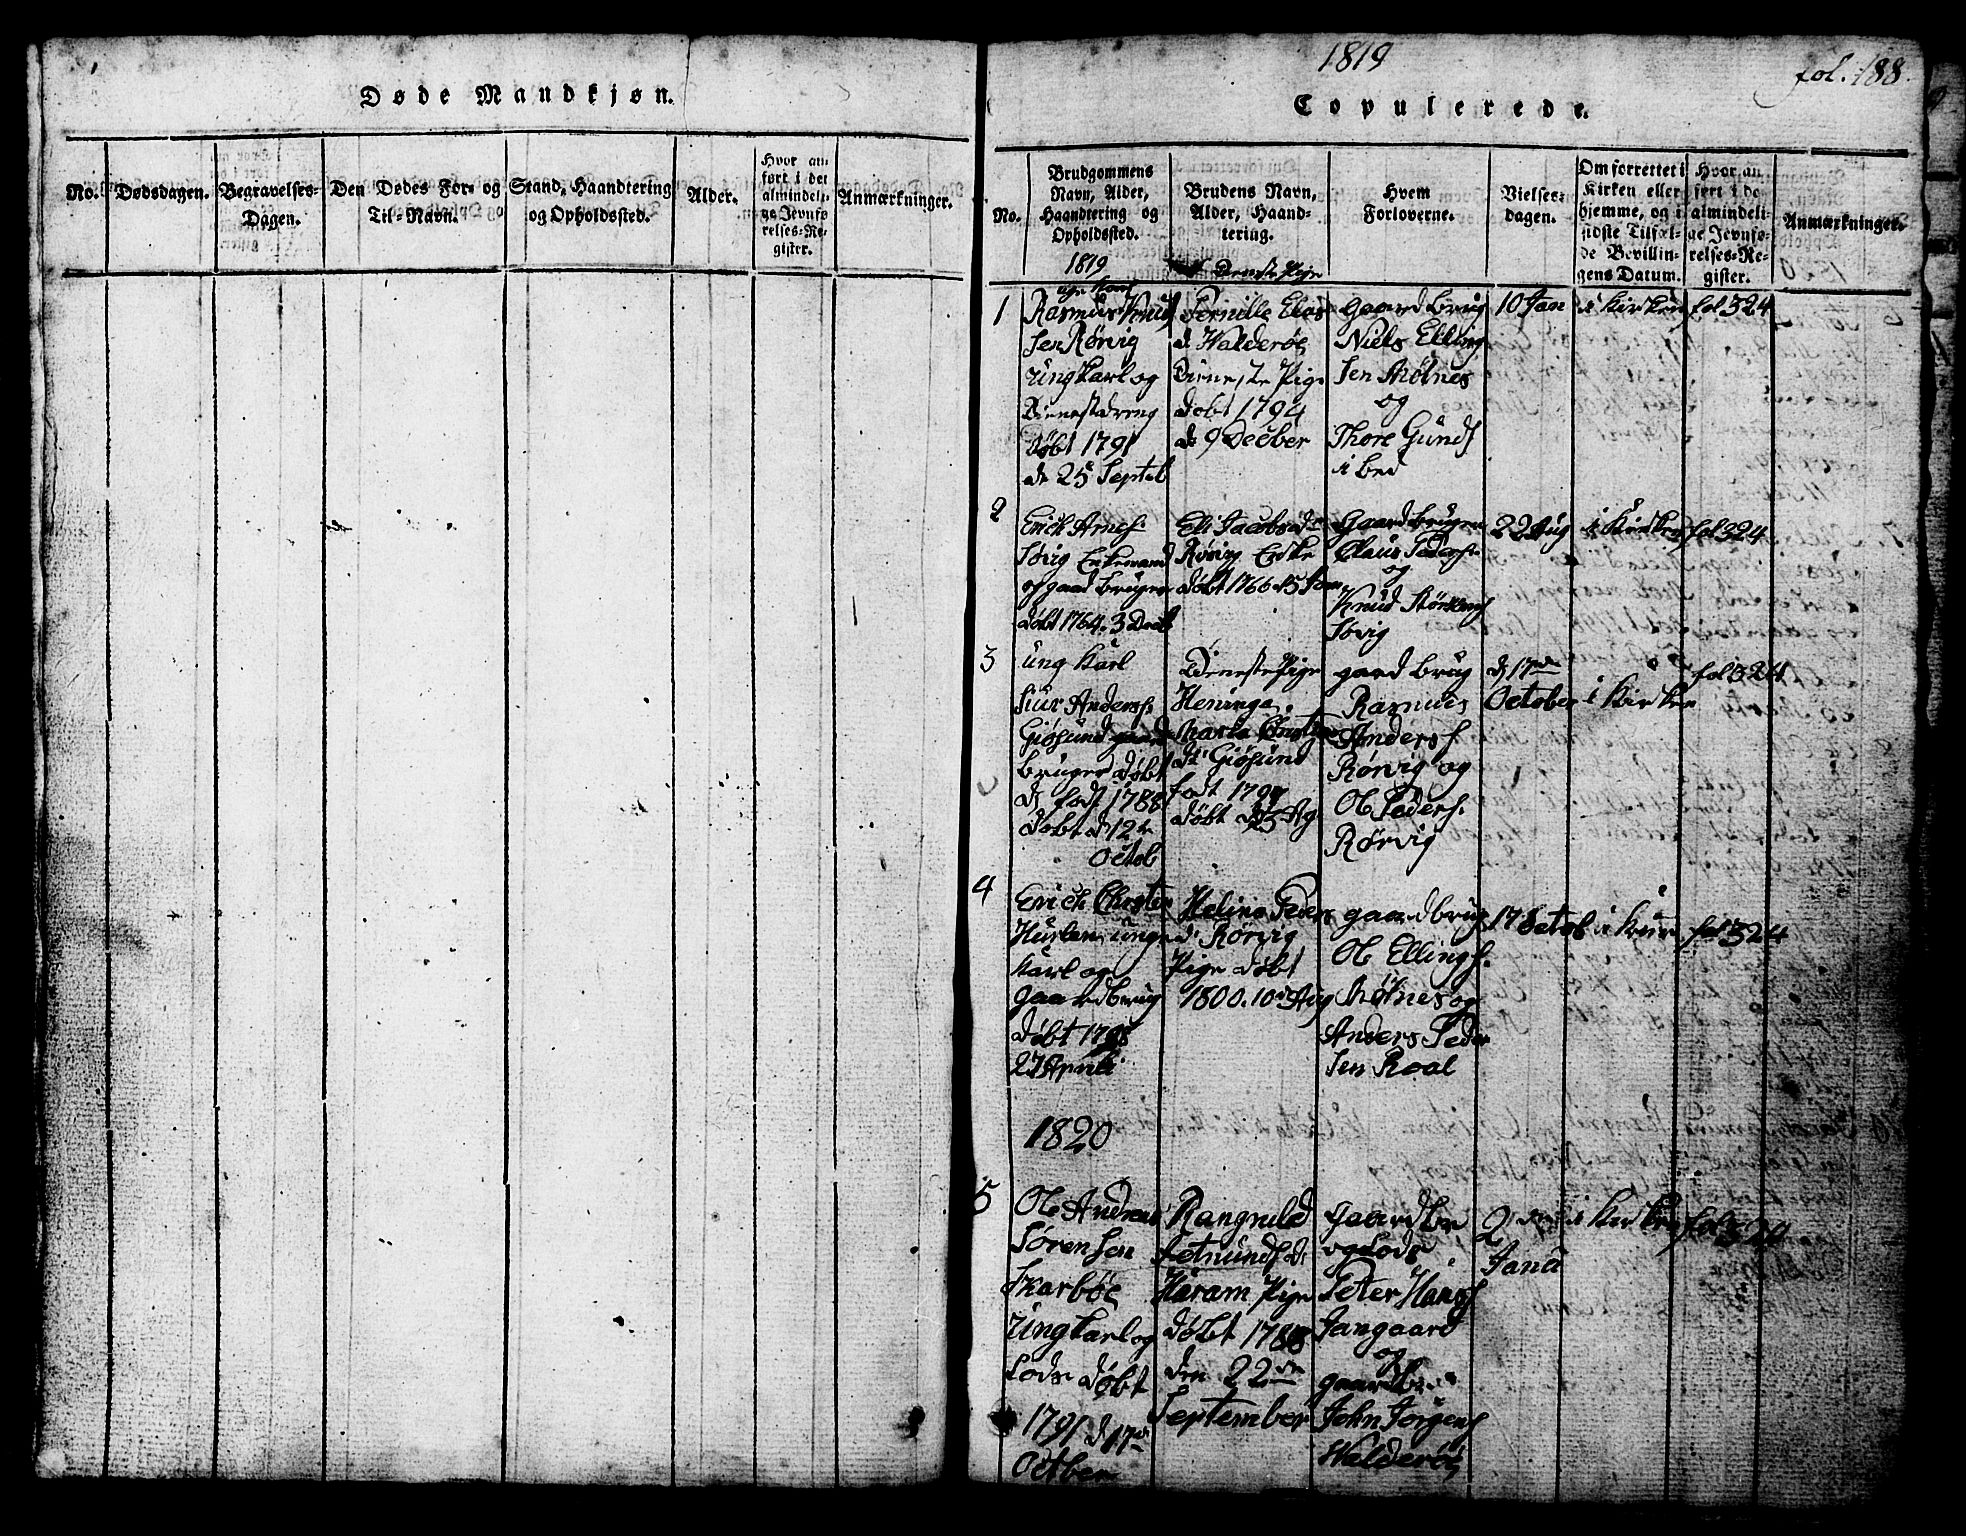 Døde Mandkjøn.
No.
Dødsdagen.
Begravelses-
Dagen.
Den Dødes For- og
Til-Navn.
Stand, Haandtering
og Opholdssted.
Alder.
Hvor an-
ført i det
almindeli-
ge Jevnfø-
relses-Re-
gister.
Anmærkninger.
1819
fol. 188.
Copulerede.
No.
Brudgommens
Navn, Alder,
Haandtering og
Opholdssted.
Brudens Navn,
Alder, Haand-
tering.
Hvem
Forloverne.
Vielses-
dagen.
Om forrettet i
Kirken eller
hjemme, og i
sidste Tilfæl-
de Bevillin-
gens Datum.
Hvor an-
ført i de
almindeli-
ge Jevnfø-
relses-Re-
gister.
Anmærkninger.
1819
1
Rasmus Knud
sen Rørvig
ungkarl og
Dienestdreng
Døbt 1791
d. 25 Septeb
Pernille Elias
d Walderøe
Dieneste Pige
døbt 1794
d. 9 Decber
Gaardbrug
Niels Elling
sen Molnes
og
Thore Gunds
10 Jan
i Kirken
fol 324
2
Erich Arnes:
Søvig Enkemand
og gaardbruger
døbt 1764. 3 Decb
Eli Jacobsd
Rørvig Enke
døbt 1766
Gaardbruger
Claus Peders:
og
Knud
Søvig
22 Aug
i Kirken
fol 324
3
ung Karl
Siur Anders:
Giøsund
bruger døbt
d. født 1788
døbt d 12
Octob
Dieneste Pige
Heninga
d. Giøsund
født 1797
døbt d Ag
gaardbrug
Rasmus
Anders
Rørvig og
Ol Peders:
Rørvig
d 17de
October
i Kirken
fol 324
4
Erich Christen
ung
Karl og
gaardbrug
Døbt 1798
27 Aprili
Helina Peders
d. Rørvig
Pige døbt
1800. 10 Aug
gaardbrug
Ol Ellings.
Molnes og
Anders Peder
sen Roal
17 Octob
i Kir
fol 324
1820
5
Ol Andreas
Sørensen
Skarbøe
Ungkarl og
Lods døbt
1791 d 17de
Octber
Rangnild
Aetmundsd.
Haram Pige
Døbt 1788
den 22de
September
Gaardbr
og Lods
Peter Hans
Jangaard
og
gaardbr
John Jørgens
Walderøe
2den
Janu
i Kirken